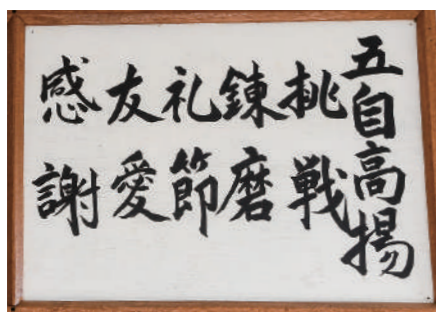 五自高揚
挑戦
錬磨
礼節
友愛
感謝